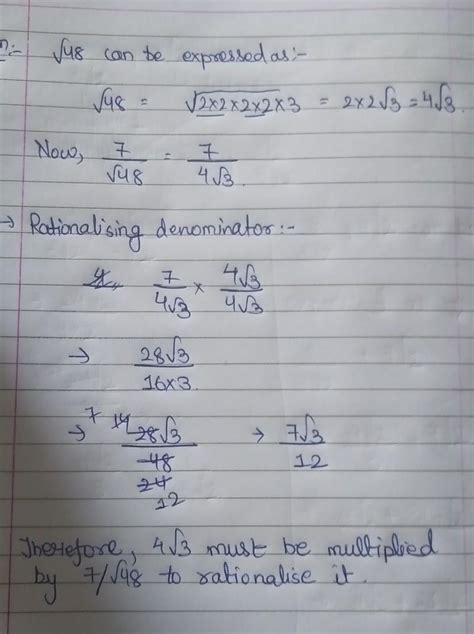 n:- √48 can be expressed as:-
√48 = √2×2×2×2×3 = 2×2√3 = 4√3.
Now, 7/√48 = 7/4√3.
→ Rationalising denominator:-
7/4√3 × 4√3/4√3
→ 28√3/16×3
→ 7 14 28√3/48 24 12 → 7√3/12
Therefore, 4√3 must be multiplied
by 7/√48 to rationalise it.